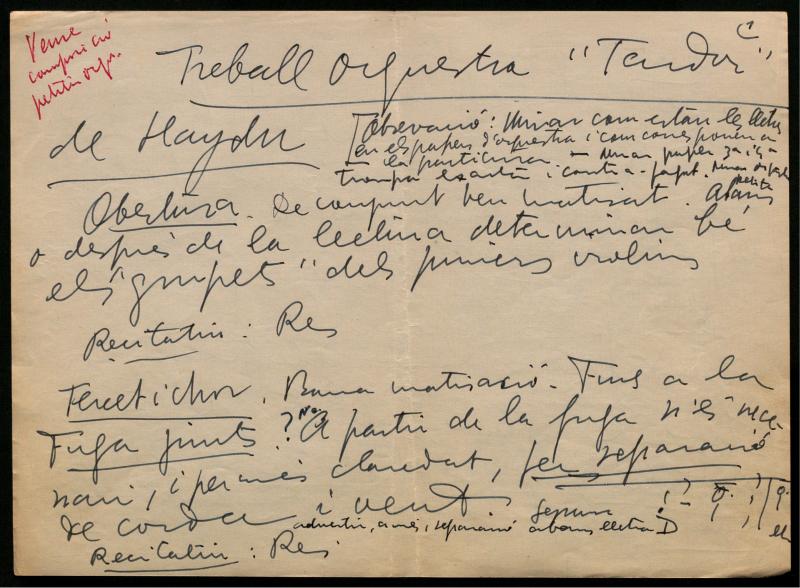 Veure
composició
petita orq.
1
Treball orquestra "Tardor"
de Haydn
Observació: Mirar com están les lletres
en els papers d'orquestra i com corresponen a
la particura. - Mirar paper 2a i 3a
trompa exactes i contra-fagot. Mirar orquestra petita
Obertura. De conjunt ben matisat. Abans
o després de la lectura determinar bé
els "grupets" dels primers violins
Recitatiu: Res
Tercet i chor. Bona matisació. Fins a la
Fuga junts? No A partir de la fuga si és nece-
sari, i per més claredat, fer separació
de corda i vent
advertir, a més, separació abans lletra D
Recitatiu: Res